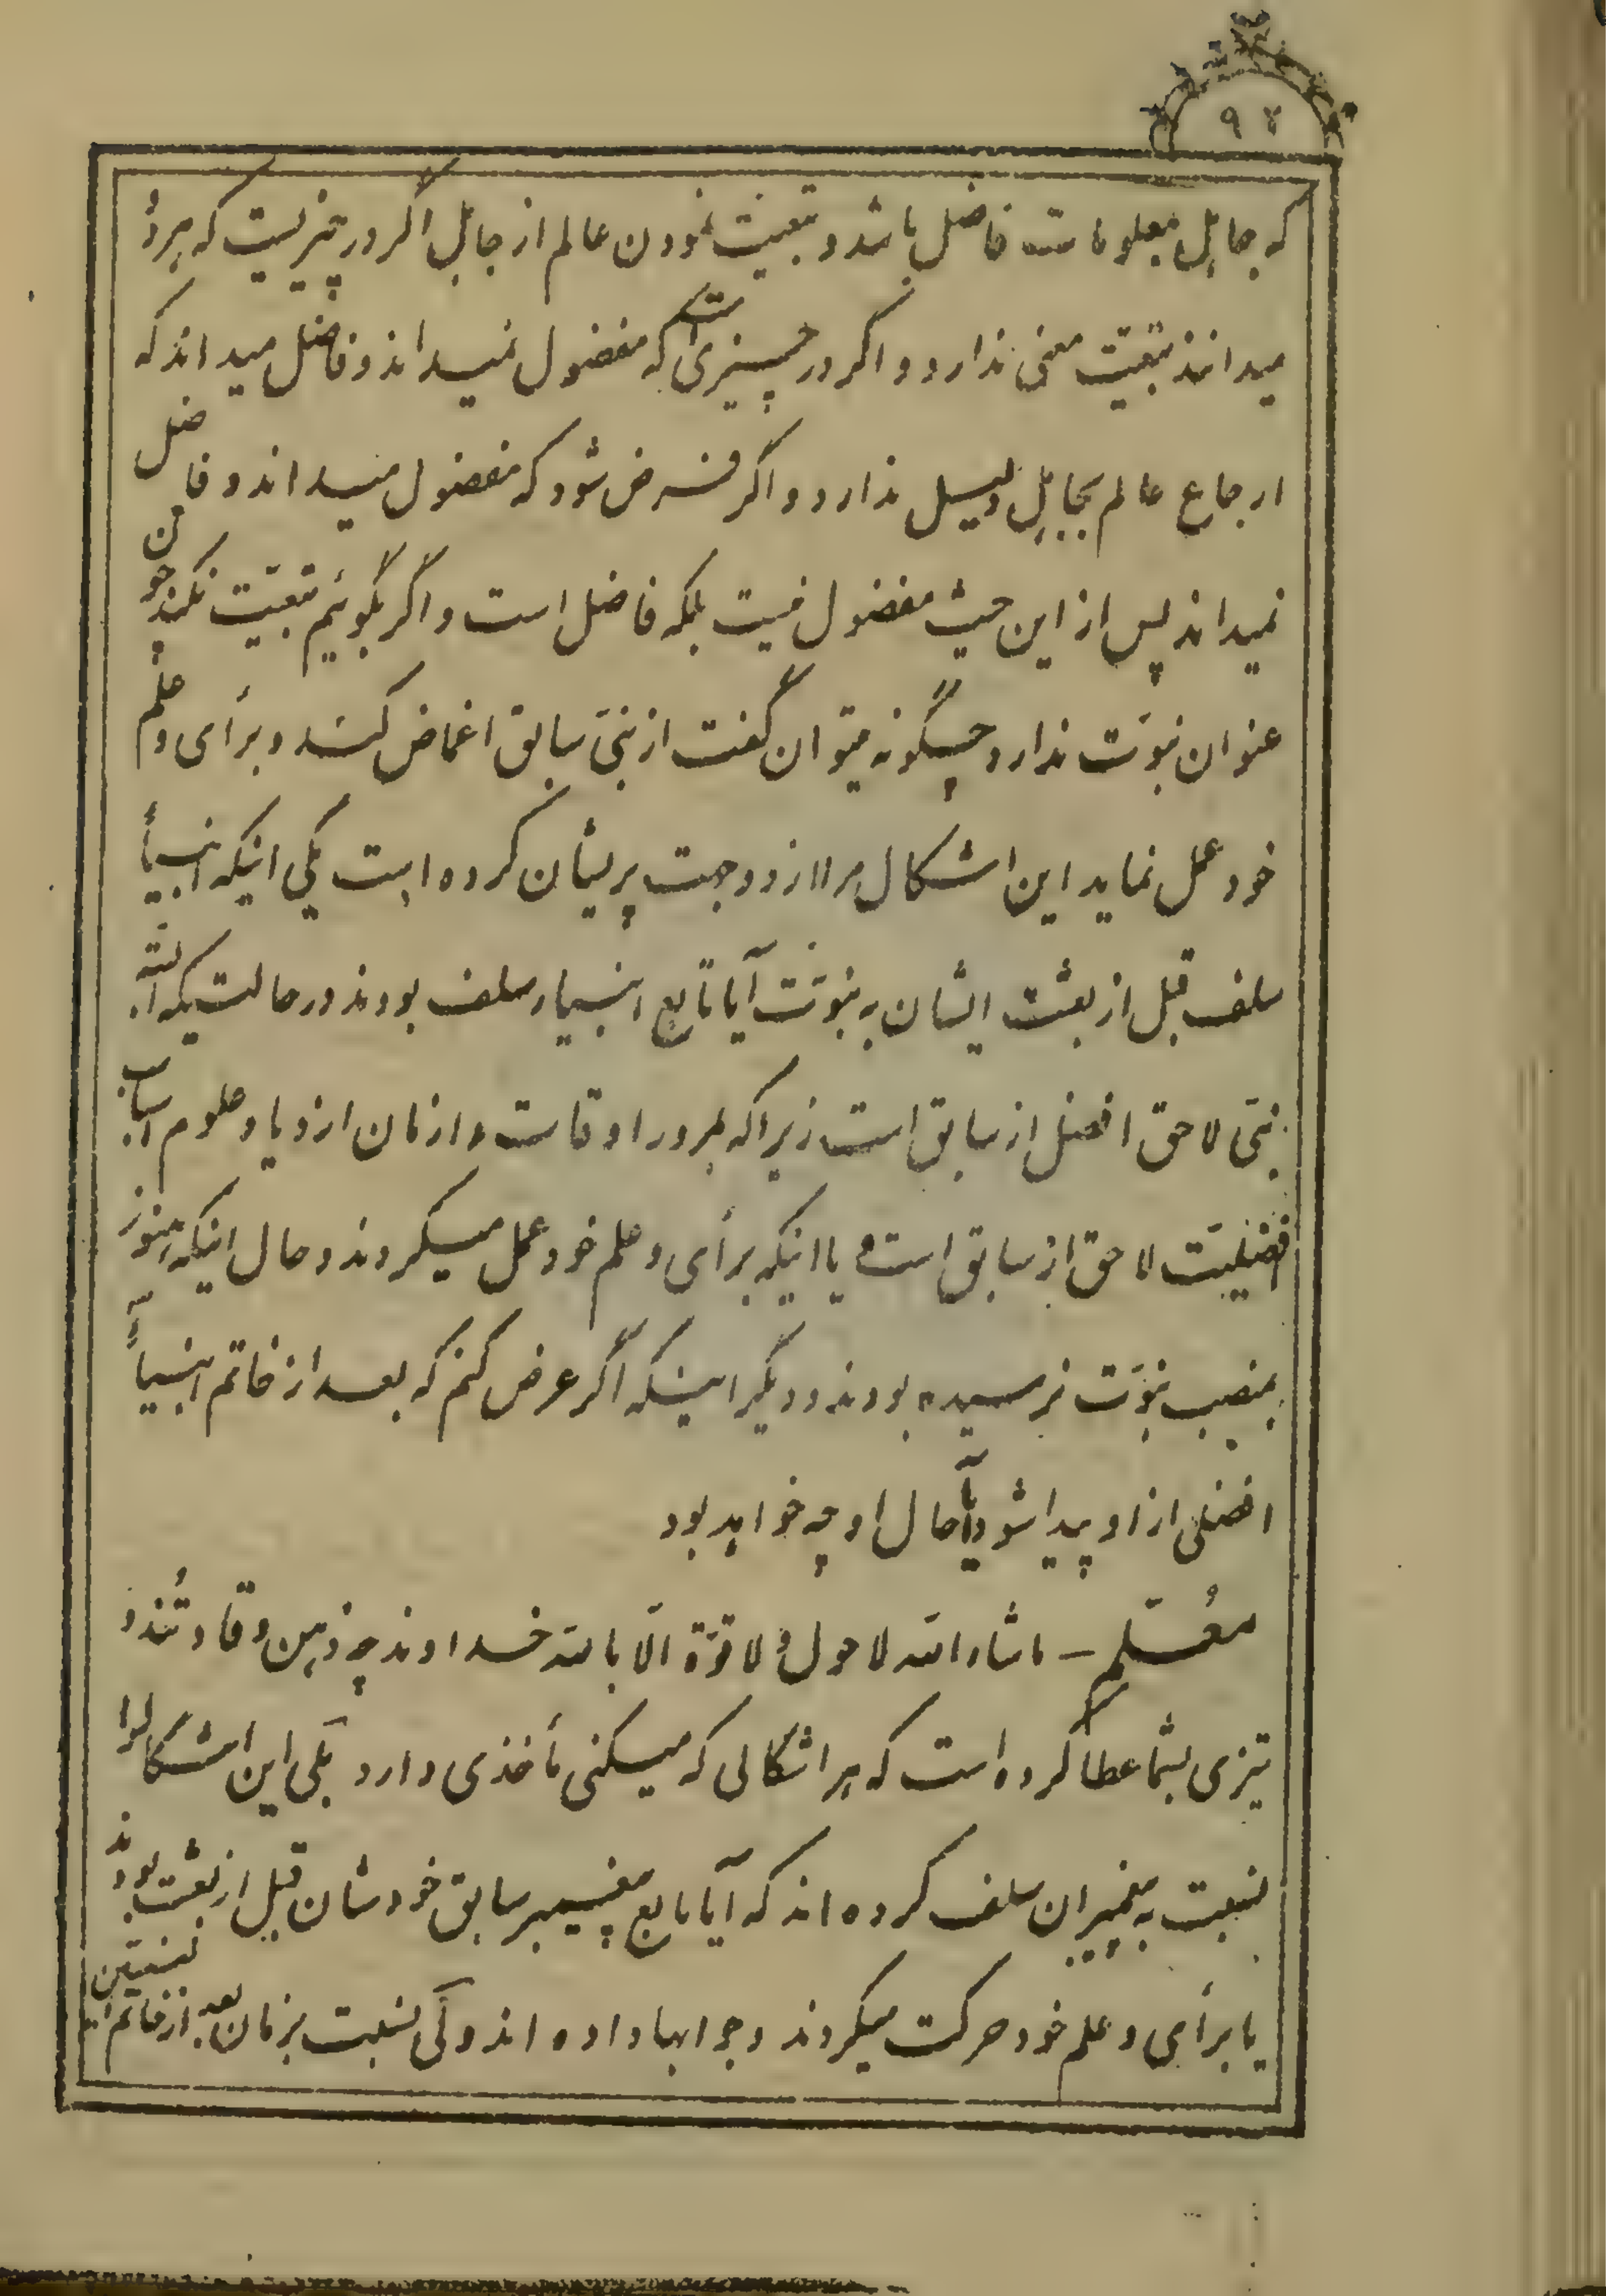 ۹۲
که جاهل بمعلومات فاضل باشد و تبعیّت نمودن عالم از جاهل اگر در چیزیست که هر دو
میدانند تبعیّت معنی ندارد و اگر در چیزی است که مفضول نمیداند و فاضل میداند که
ارجاع عالم بجاهل دلیل ندارد و اگر فرض شود که مفضول میداند و فاضل
نمیداند پس از این حیث مفضول نیست بلکه فاضل است و اگر بگوئیم تبعیّت نکند چون
عنوان نبوّت ندارد چگونه میتوان گفت از نبیّ سابق اغماض کند و برأی و علم
خود عمل نماید این اشکال مرا از دو جهت پریشان کرده است یکی اینکه انبیأ
سلف قبل از بعثت ایشان به نبوّت آیا تابع انبیاء سلف بودند در حالتیکه البته
نبیّ لاحق افضل از سابق است زیرا که بمرور اوقات و ازمان ازدیاد علوم اسباب
افضلیّت لاحق از سابق است یا اینکه برأی و علم خود عمل میکردند و حال اینکه هنوز
بمنصب نبوّت نرسیده بودند و دیگر اینکه اگر عرض کنم که بعد از خاتم انبیأ
افضلی از او پیدا شود آیا حال او چه خواهد بود
معُلّم – ماشاء الله لا حول و لا قوّة الّا بالله خداوند چه ذهن وقاد تُند و
تیزی بشما عطا کرده است که هر اشکالی که میکنی مأخذی دارد بلی این اشکال را
نسبت به پیغمبران سلف کرده اند که آیا تابع پیغمبر سابق خودشان قبل از بعثت بودند
یا برأی و علم خود حرکت میکردند و جوابها داده اند ولی نسبت بزمان بعد از خاتم النبیّین